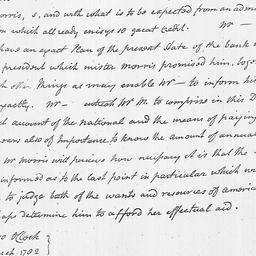 orris, s, and with what is to be expected from an adm
on which allready enjoys so great credit. Mr —
have an exact Plan of the present State of the bank
president which mister Morris promised him.
other Things as may enable Mr — to inform his
xactly. Mr — Mr M. to comprise in this D
ct account of the national and the means of paying
ears also of Importance to know the amount of annual
Mr Morris will perceive how necessary it is that the
informed as to the last point in particular which w
to judge both of the wants and resources of america
haps determine him to afford her effectual aid.
o O'Clock
rch 1782